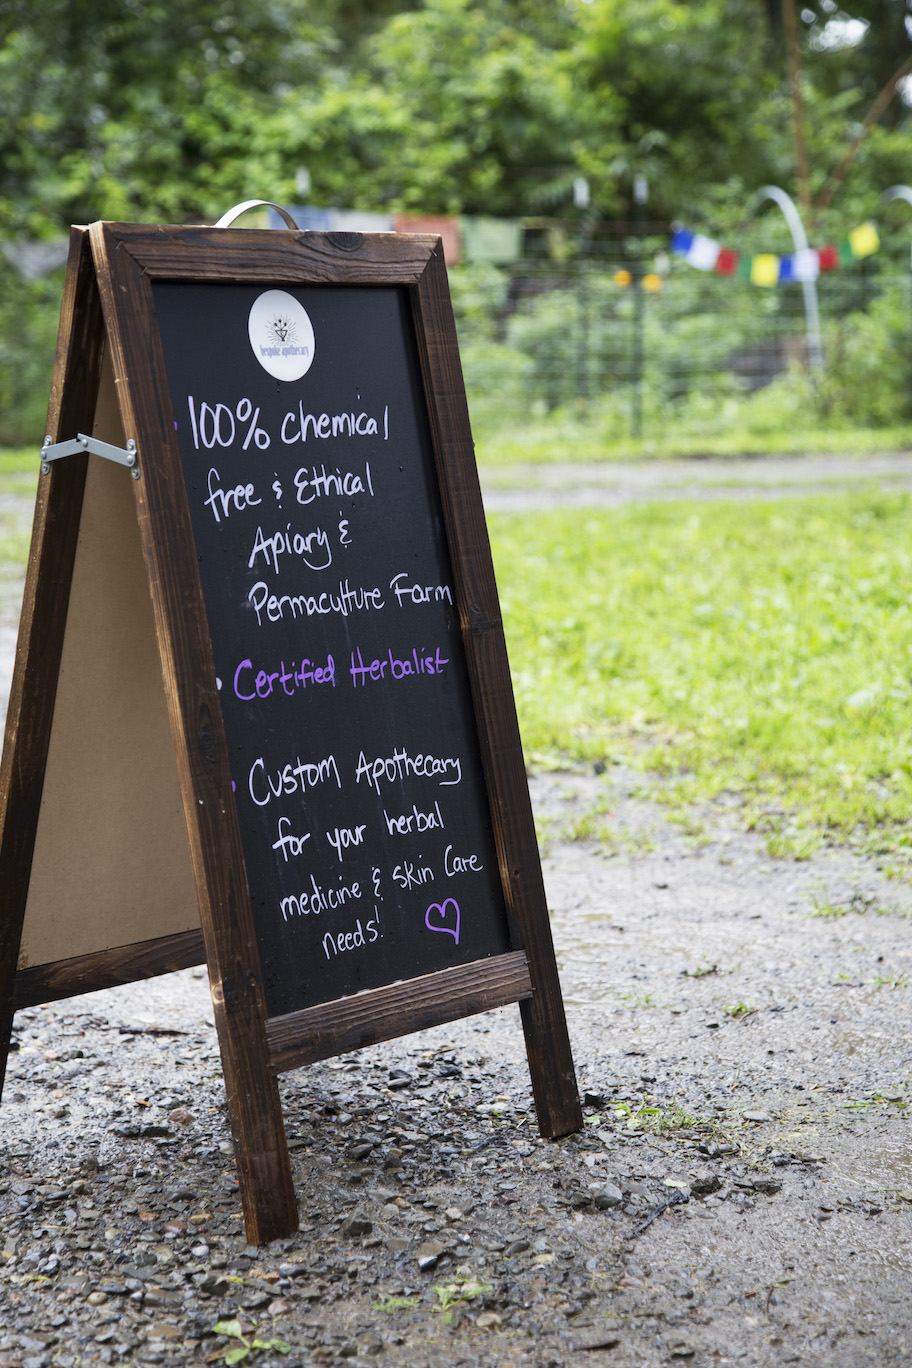 bespoke apothecary
100% Chemical
free & Ethical
Apiary &
Permaculture Farm
Certified Herbalist
Custom Apothecary
for your herbal
medicine & skin Care
needs!